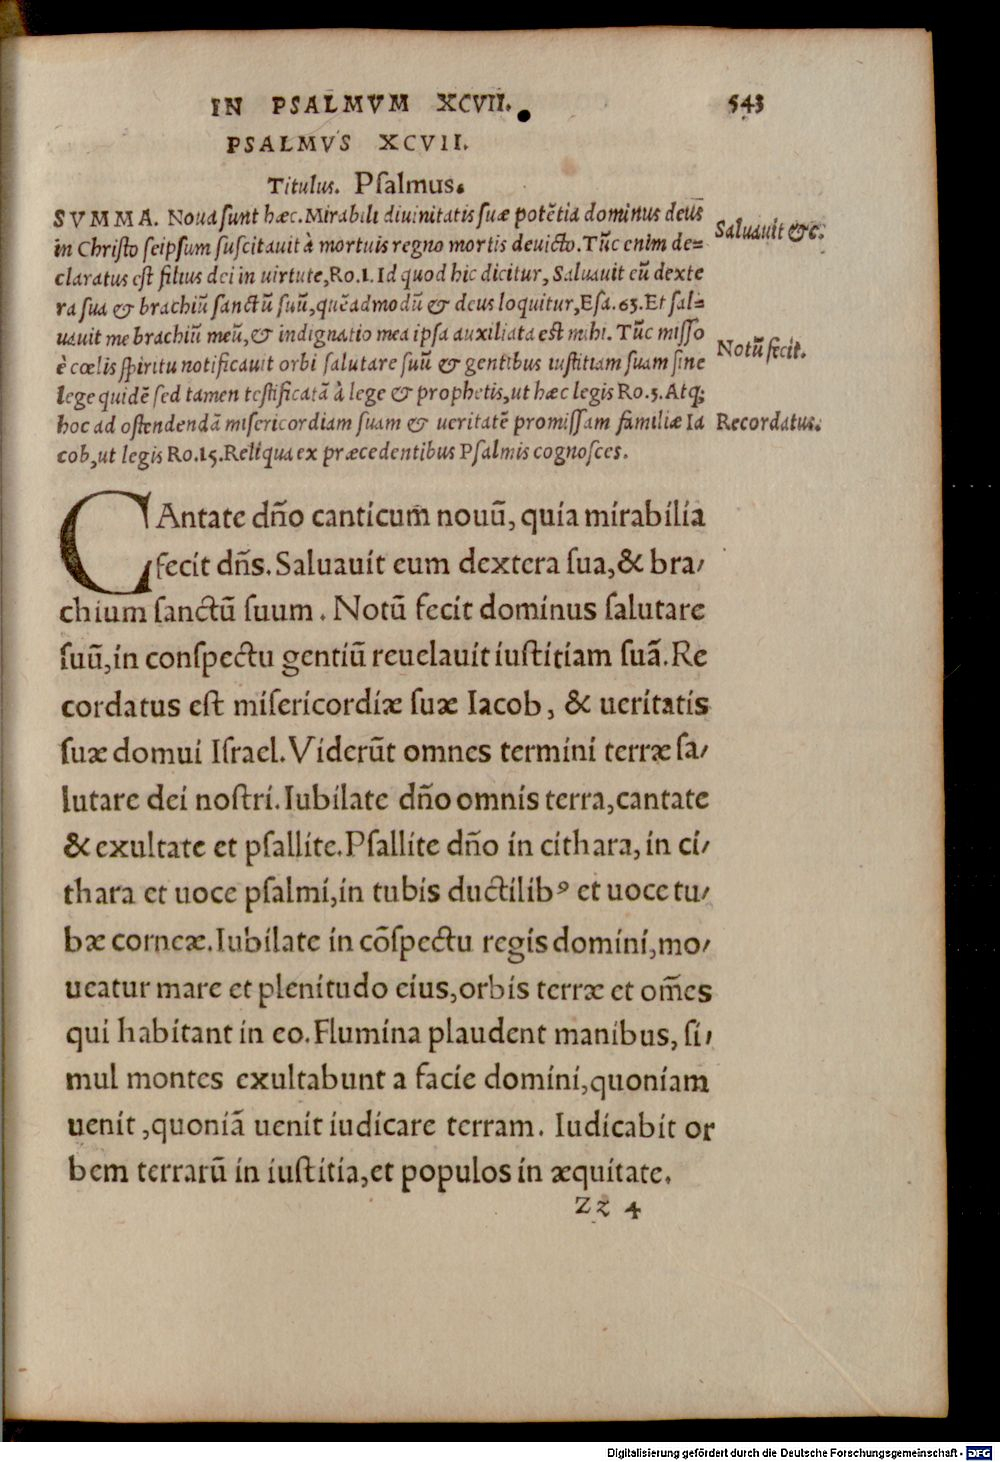 IN PSALMVM XCVII. 543
PSALMVS XCVII.
Titulus. Pſalmus.
SVMMA. Noua ſunt hæc. Mirabili diuinitatis ſuæ potẽtia dominus deus
in Chriſto ſeipſum ſuſcitauit à mortuis regno mortis deuicto. Tũc enim de=
claratus eſt filius dei in uirtute, Ro. 1. Id quod hic dicitur, Saluauit eũ dexte
ra ſua & brachiũ ſanctũ ſuũ, quẽadmodũ & deus loquitur, Eſa. 63. Et ſal=
uauit me brachiũ meũ, & indignatio mea ipſa auxiliata eſt mihi. Tũc miſſo
è cœlis ſpiritu notificauit orbi ſalutare ſuũ & gentibus iuſtitiam ſuam ſine
lege quidẽ ſed tamen teſtificatã à lege & prophetis, ut hæc legis Ro. 3. Atq;
hoc ad oſtendendã miſericordiam ſuam & ueritatẽ promiſſam familiæ Ia
cob, ut legis Ro. 15. Reliqua ex præcedentibus Pſalmis cognoſces.
Saluauit &c.
Notũ fecit.
Recordatus.
CAntate dño canticum nouũ, quia mirabilia
fecit dñs. Saluauit eum dextera ſua, & bra/
chium ſanctũ ſuum. Notũ fecit dominus ſalutare
ſuũ, in conſpectu gentiũ reuelauit iuſtitiam ſuã. Re
cordatus eſt miſericordiæ ſuæ Iacob, & ueritatis
ſuæ domui Iſrael. Viderũt omnes termini terræ ſa/
lutare dei noſtri. Iubilate dño omnis terra, cantate
& exultate et pſallite. Pſallite dño in cithara, in ci/
thara et uoce pſalmi, in tubis ductilibꝰ et uoce tu/
bæ corneæ. Iubilate in cõſpectu regis domini, mo/
ueatur mare et plenitudo eius, orbis terræ et om̃es
qui habitant in eo. Flumina plaudent manibus, ſi/
mul montes exultabunt a facie domini, quoniam
uenit, quoniã uenit iudicare terram. Iudicabit or
bem terrarũ in iuſtitia, et populos in æquitate.
Zz 4
Digitalisierung gefördert durch die Deutsche Forschungsgemeinschaft - DFG